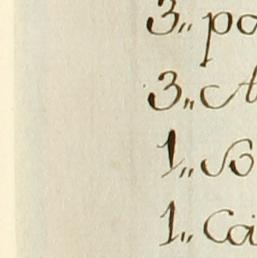 3„ po
3„
1„ So
1„ Cai